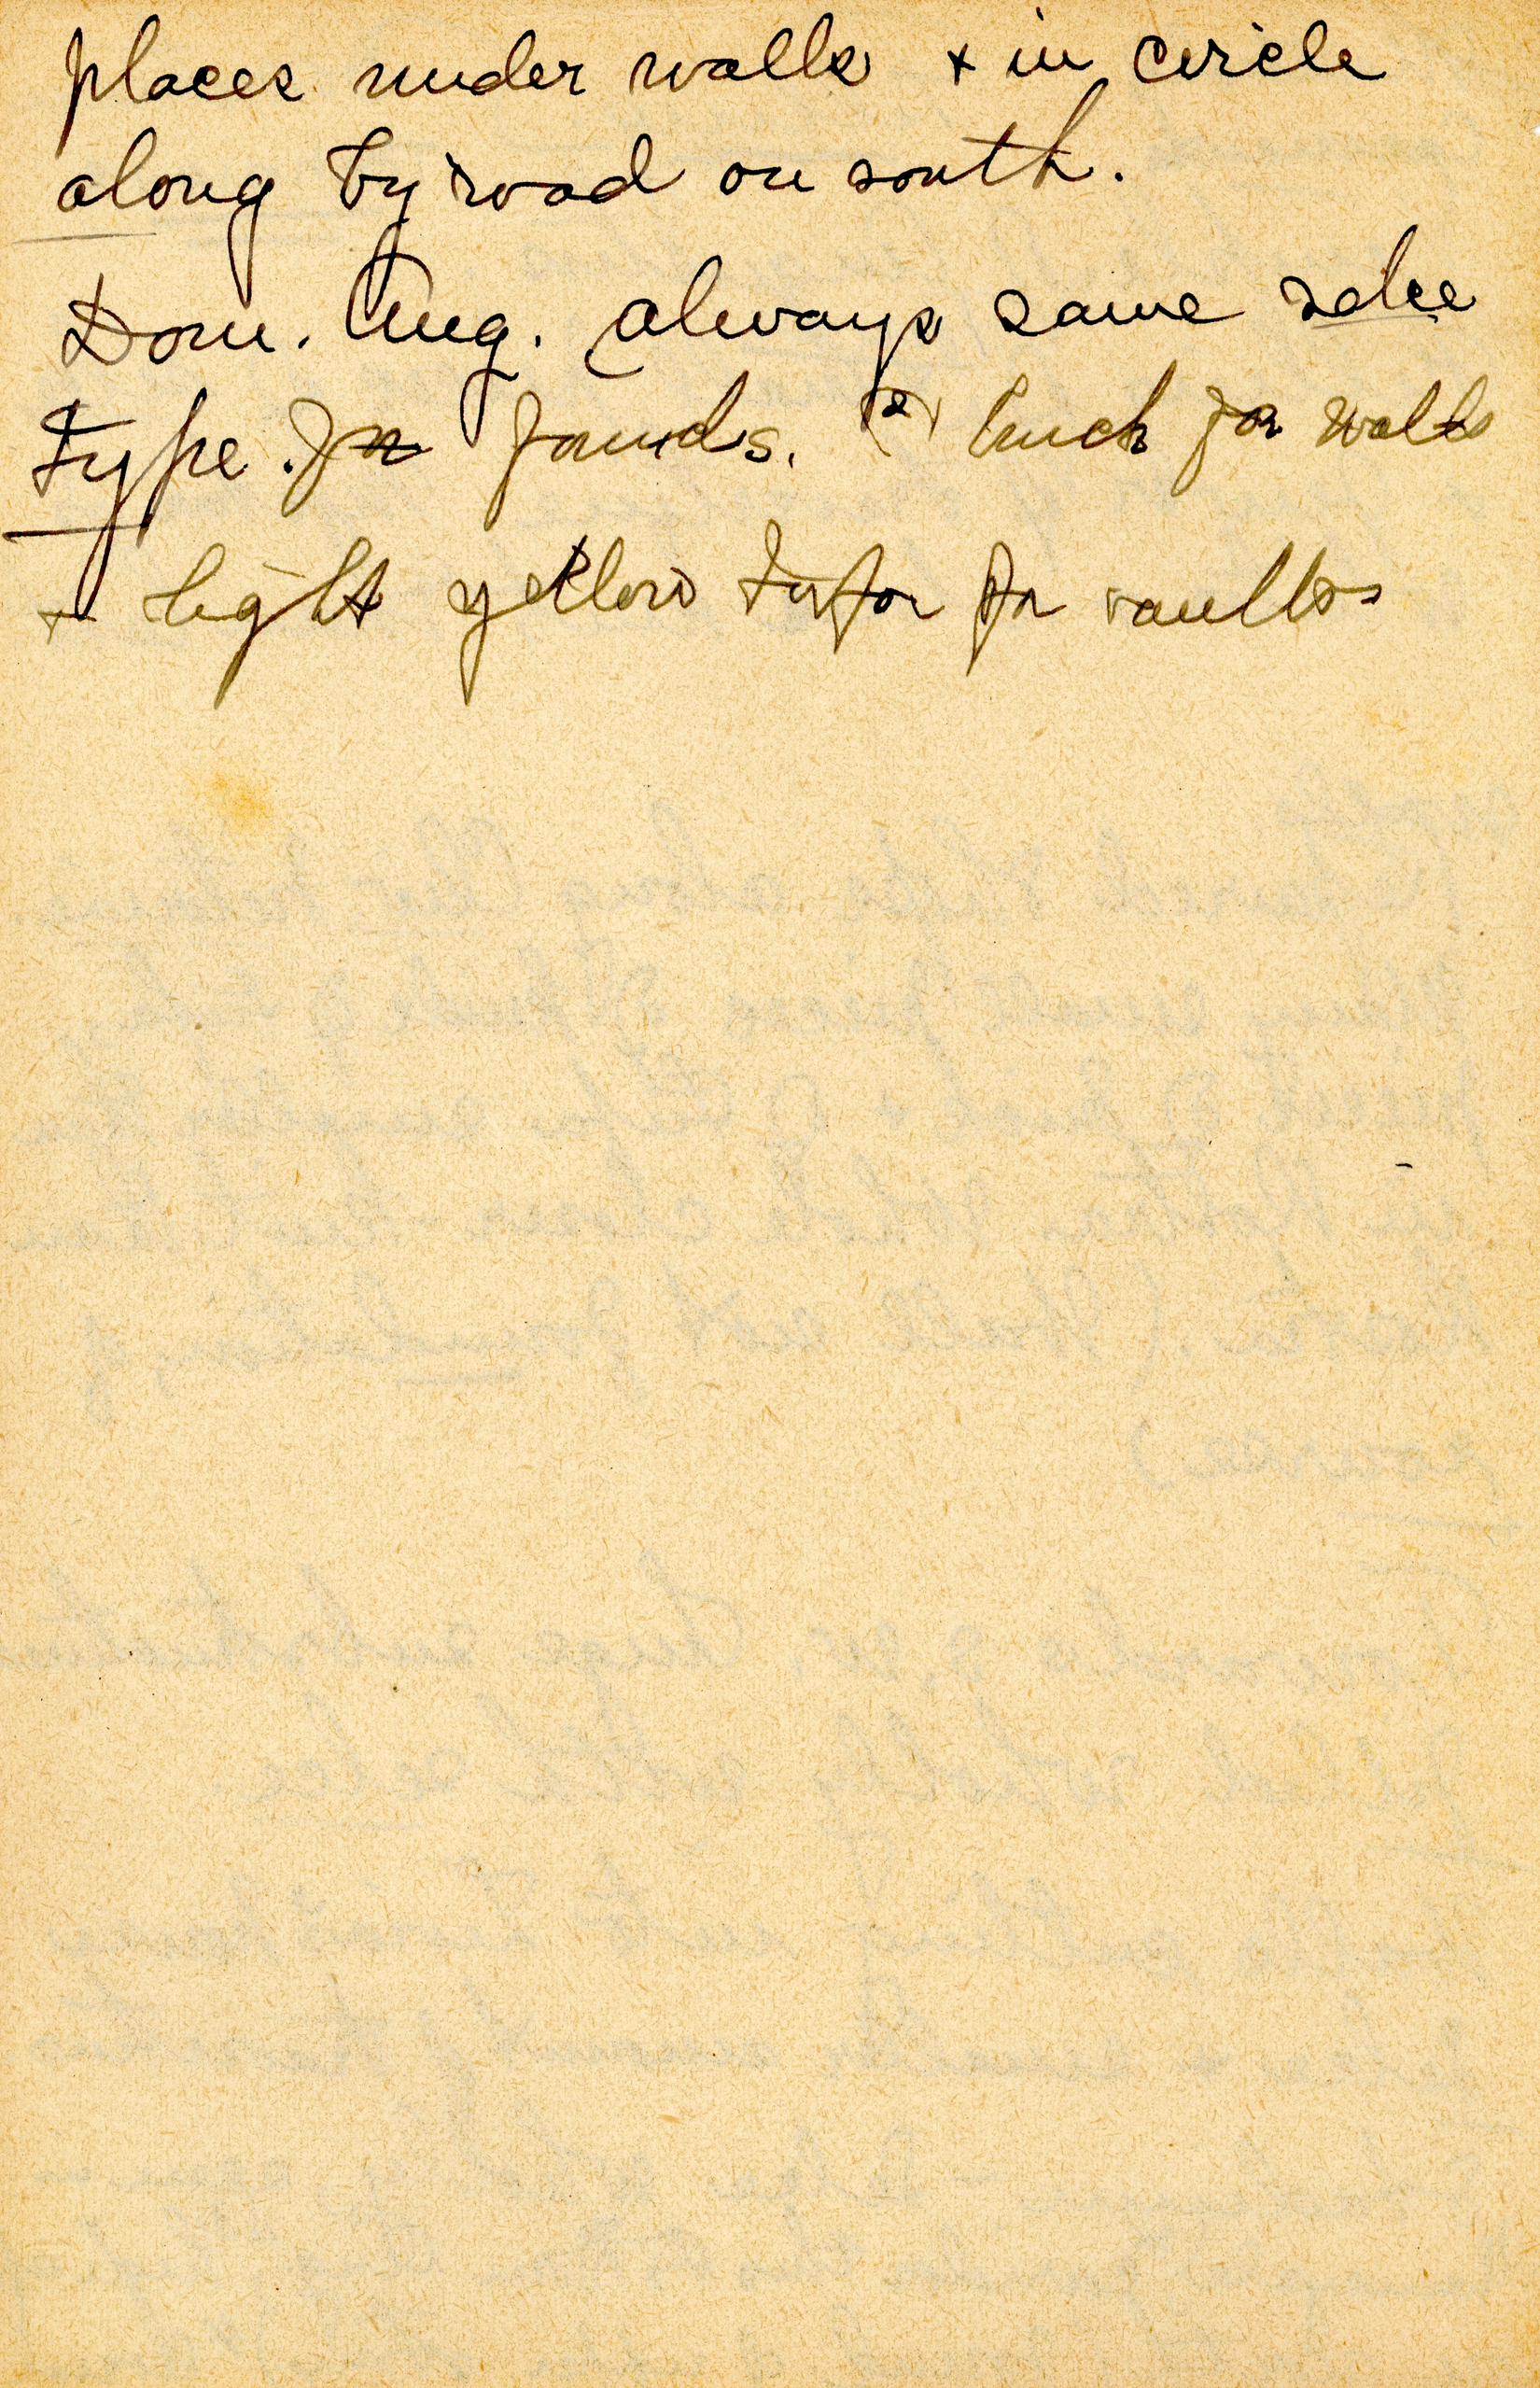 places under walls + in circle
along by road on south.
Dom. Aug. always same selce
type for founds. (2) brick for walls
+ light yellow tufa for vaults